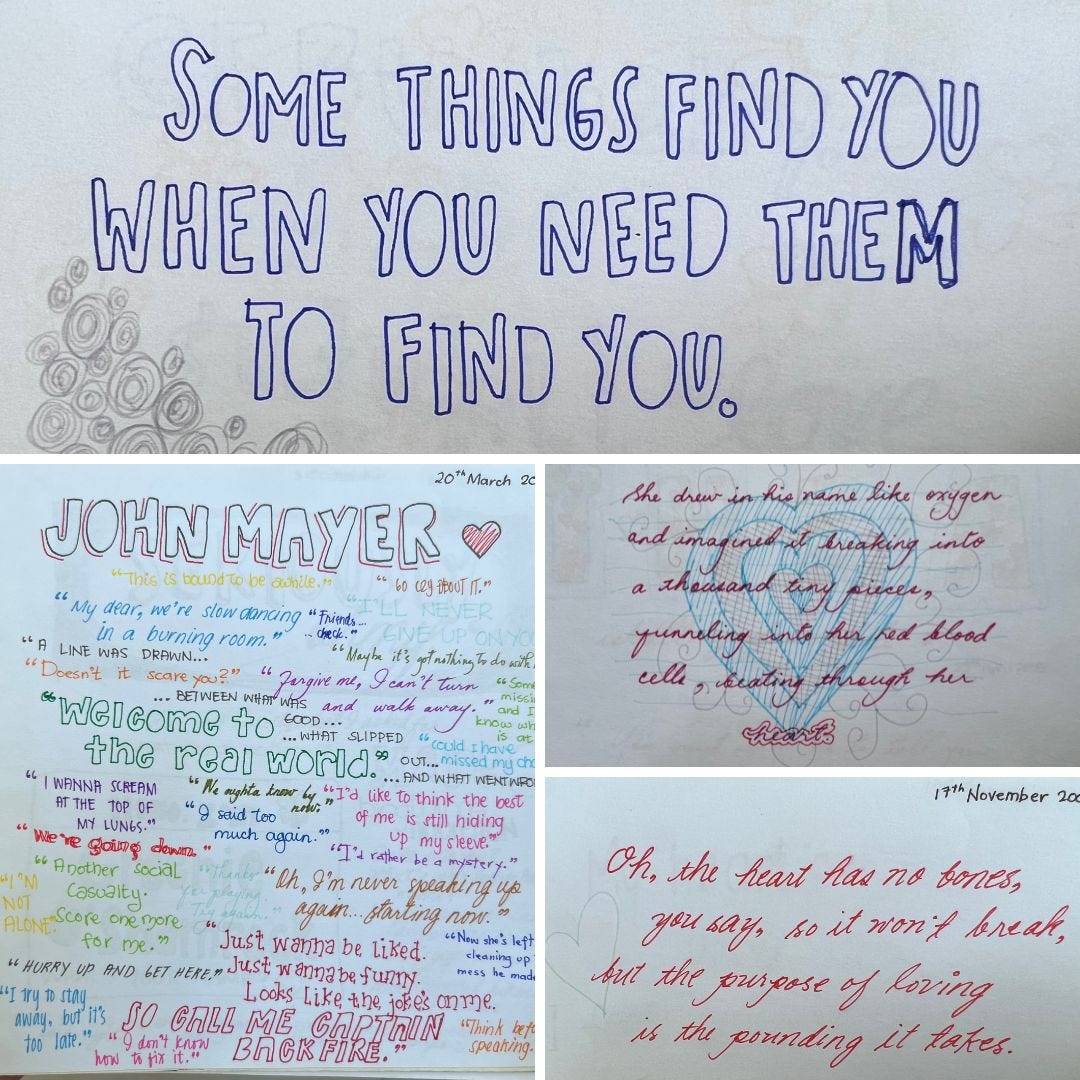 SOME THINGS FIND YOU
WHEN YOU NEED THEM
TO FIND YOU.
20th March 20
JOHN MAYER
"This is bound to be awhile."
"GO CRY ABOUT IT."
"My dear, we're slow dancing
in a burning room."
"Friends...
...check."
"I'LL NEVER
GIVE UP ON YO
"A LINE WAS DRAWN...
"Maybe it's got nothing to do with
"Doesn't it scare you?"
"Forgive me, I can't turn
and walk away."
"Some
missi
and I
know wh
is at
... BETWEEN WHAT WAS
GOOD...
...WHAT SLIPPED
OUT...
...AND WHAT WENT WRO
"Welcome to
the real world."
"Could I have
missed my cha
"I WANNA SCREAM
AT THE TOP OF
MY LUNGS."
"We oughta know by
now."
"I'd like to think the best
of me is still hiding
up my sleeve."
"I said too
much again."
"We're going down."
"I'd rather be a mystery."
"Another social
casualty.
Score one more
for me."
"Thanks
for playing.
Try again."
"Oh, I'm never speaking up
again... starting now."
"I'M
NOT
ALONE."
"Just wanna be liked.
Just wanna be funny.
Looks like the joke's on me.
SO CALL ME CAPTAIN
BACKFIRE."
"Now she's left
cleaning up
mess he made
"HURRY UP AND GET HERE."
"I try to stay
away, but it's
too late."
"I don't know
how to fix it."
"Think bef
speaking.
She drew in his name like oxygen
and imagined it breaking into
a thousand tiny pieces,
funneling into her red blood
cells, beating through her
heart.
17th November 20
Oh, the heart has no bones,
you say, so it won't break,
but the purpose of loving
is the pounding it takes.